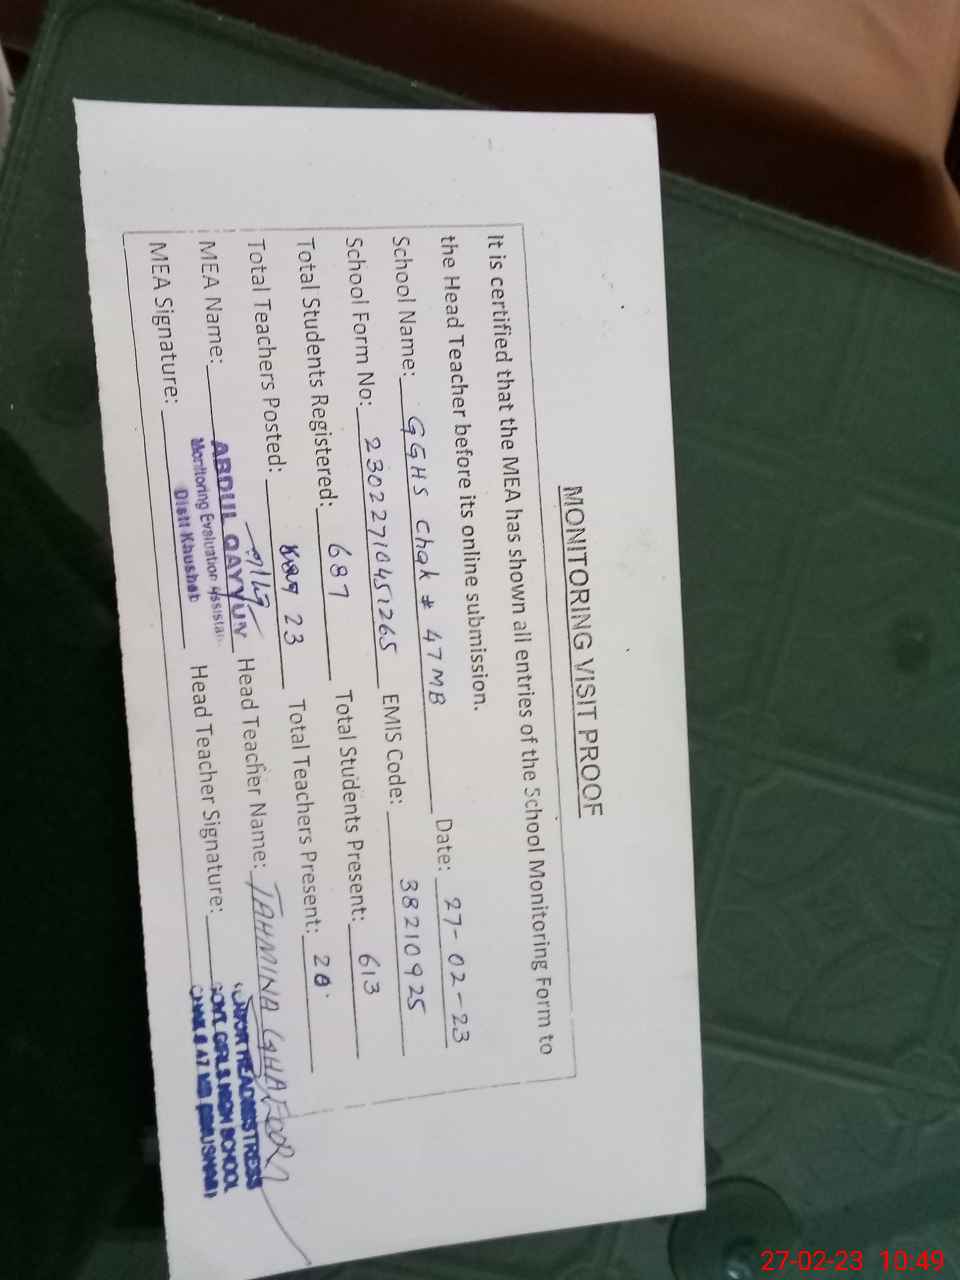 MONITORING VISIT PROOF
It is certified that the MEA has shown all entries of the School Monitoring Form to
the Head Teacher before its online submission.
School Name: GGHS Chak # 47 MB Date: 27-02-23
School Form No: 23022710451265 EMIS Code: 38210925
Total Students Registered: 687 Total Students Present: 613
Total Teachers Posted: 23 Total Teachers Present: 20
MEA Name: ABDUL QAYYUM Head Teacher Name: TAHMINA GHAFOOR
Monitoring Evaluation Assistan
Distt Khushab
MEA Signature: Head Teacher Signature:
HEADMISTRESS
GOVT. GIRLS HIGH SCHOOL
CHAK # 47 MB (KHUSHAB)
27-02-23 10:49